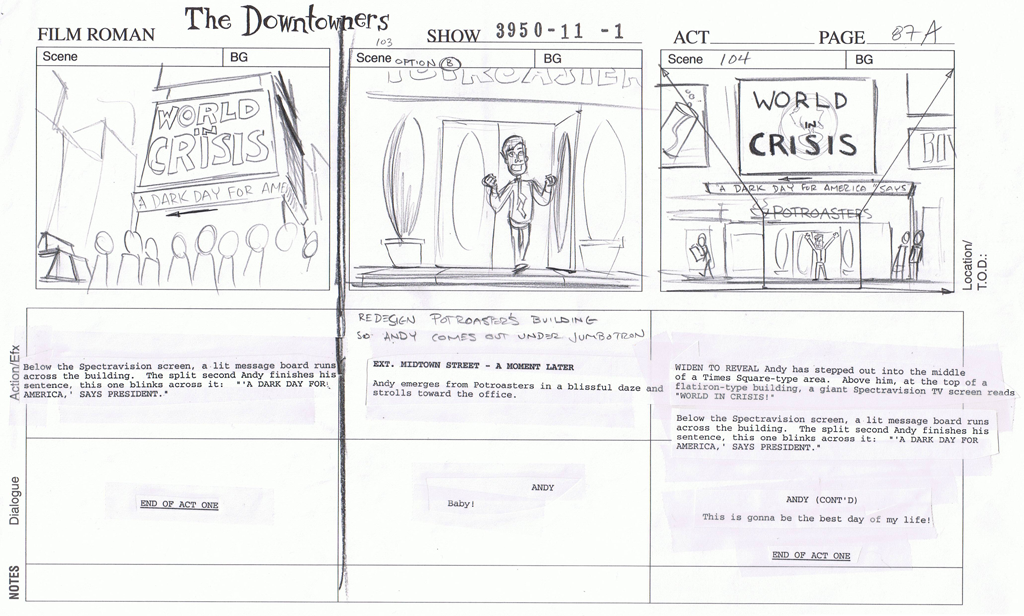 The Downtowners
FILM ROMAN
SHOW 3950-11 -1
ACT
PAGE 87A
Scene
BG
WORLD
IN
CRISIS
A DARK DAY FOR AME
103
Scene OPTION B
BG
POTROASTER
Scene 104
BG
WORLD
IN
CRISIS
BOW
"A DARK DAY FOR AMERICA" SAYS
POTROASTERS
Location/
T.O.D.:
Action/Efx
Below the Spectravision screen, a lit message board runs
across the building. The split second Andy finishes his
sentence, this one blinks across it: "'A DARK DAY FOR
AMERICA,' SAYS PRESIDENT."
REDESIGN POTROASTER'S BUILDING
SO ANDY COMES OUT UNDER JUMBOTRON
EXT. MIDTOWN STREET - A MOMENT LATER
Andy emerges from Potroasters in a blissful daze and
strolls toward the office.
WIDEN TO REVEAL Andy has stepped out into the middle
of a Times Square-type area. Above him, at the top of a
flatiron-type building, a giant Spectravision TV screen reads
"WORLD IN CRISIS!"
Below the Spectravision screen, a lit message board runs
across the building. The split second Andy finishes his
sentence, this one blinks across it: "'A DARK DAY FOR
AMERICA,' SAYS PRESIDENT."
Dialogue
END OF ACT ONE
ANDY
Baby!
ANDY (CONT'D)
This is gonna be the best day of my life!
END OF ACT ONE
NOTES